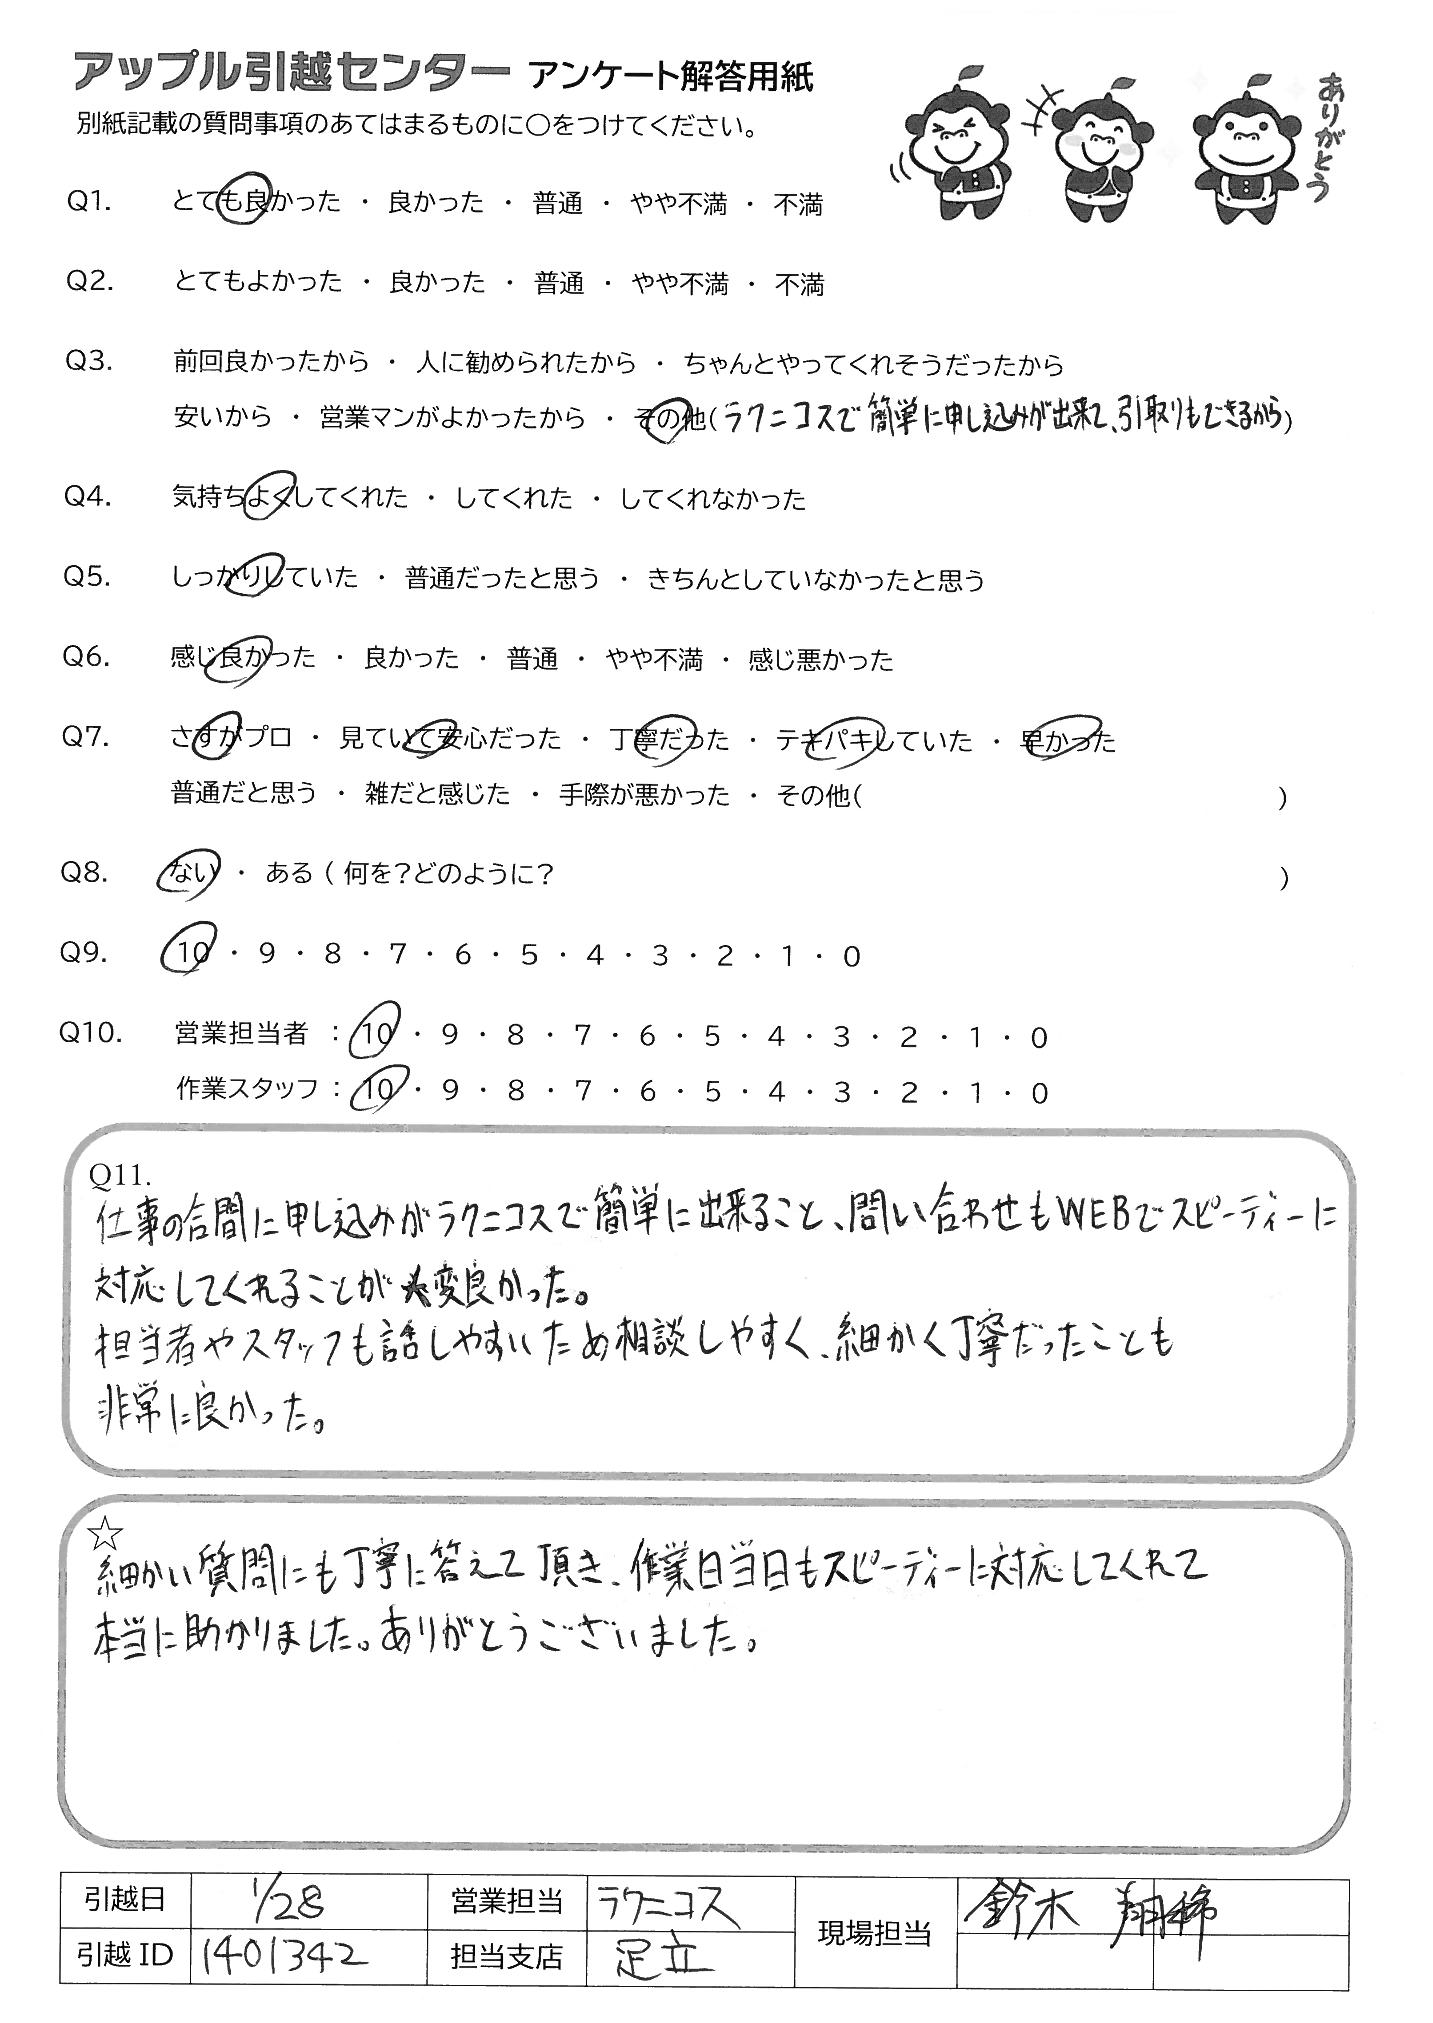 アップル引越センター アンケート解答用紙
別紙記載の質問事項のあてはまるものに○をつけてください。
ありがとう
Q1. とても良かった ・ 良かった ・ 普通 ・ やや不満 ・ 不満
Q2. とてもよかった ・ 良かった ・ 普通 ・ やや不満 ・ 不満
Q3. 前回良かったから ・ 人に勧められたから ・ ちゃんとやってくれそうだったから
安いから ・ 営業マンがよかったから ・ その他(ラクニコスで簡単に申し込みが出来て、引取りもできるから)
Q4. 気持ちよくしてくれた ・ してくれた ・ してくれなかった
Q5. しっかりしていた ・ 普通だったと思う ・ きちんとしていなかったと思う
Q6. 感じ良かった ・ 良かった ・ 普通 ・ やや不満 ・ 感じ悪かった
Q7. さすがプロ ・ 見ていて安心だった ・ 丁寧だった ・ テキパキしていた ・ 早かった
普通だと思う ・ 雑だと感じた ・ 手際が悪かった ・ その他( )
Q8. ない ・ ある ( 何を?どのように? )
Q9. 10 ・ 9 ・ 8 ・ 7 ・ 6 ・ 5 ・ 4 ・ 3 ・ 2 ・ 1 ・ 0
Q10. 営業担当者 : 10 ・ 9 ・ 8 ・ 7 ・ 6 ・ 5 ・ 4 ・ 3 ・ 2 ・ 1 ・ 0
作業スタッフ : 10 ・ 9 ・ 8 ・ 7 ・ 6 ・ 5 ・ 4 ・ 3 ・ 2 ・ 1 ・ 0
Q11.
仕事の合間に申し込みがラクニコスで簡単に出来ること、問い合わせもWEBでスピーディーに
対応してくれることが大変良かった。
担当者やスタッフも話しやすいため相談しやすく、細かく丁寧だったことも
非常に良かった。
☆
細かい質問にも丁寧に答えて頂き、作業日当日もスピーディーに対応してくれて
本当に助かりました。ありがとうございました。
引越日 1/28 営業担当 ラクニコス 現場担当 鈴木 翔稀
引越ID 1401342 担当支店 足立